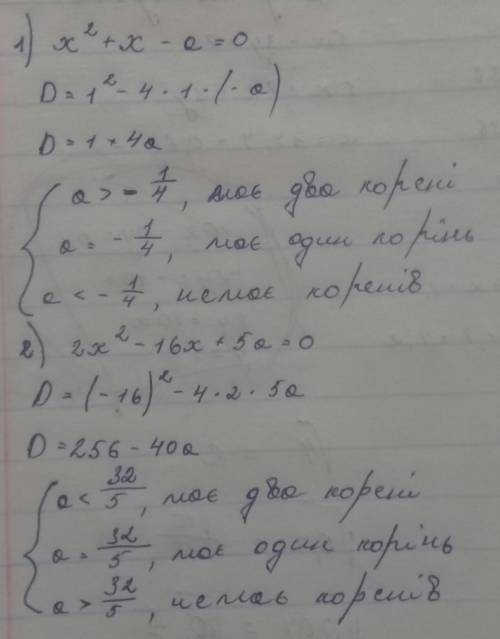 1) x² + x - a = 0
D = 1² - 4 · 1 · (- a)
D = 1 + 4a
a > - 1/4, має два корені
a = - 1/4, має один корінь
a < - 1/4, немає коренів
2) 2x² - 16x + 5a = 0
D = (-16)² - 4 · 2 · 5a
D = 256 - 40a
a < 32/5, має два корені
a = 32/5, має один корінь
a > 32/5, немає коренів